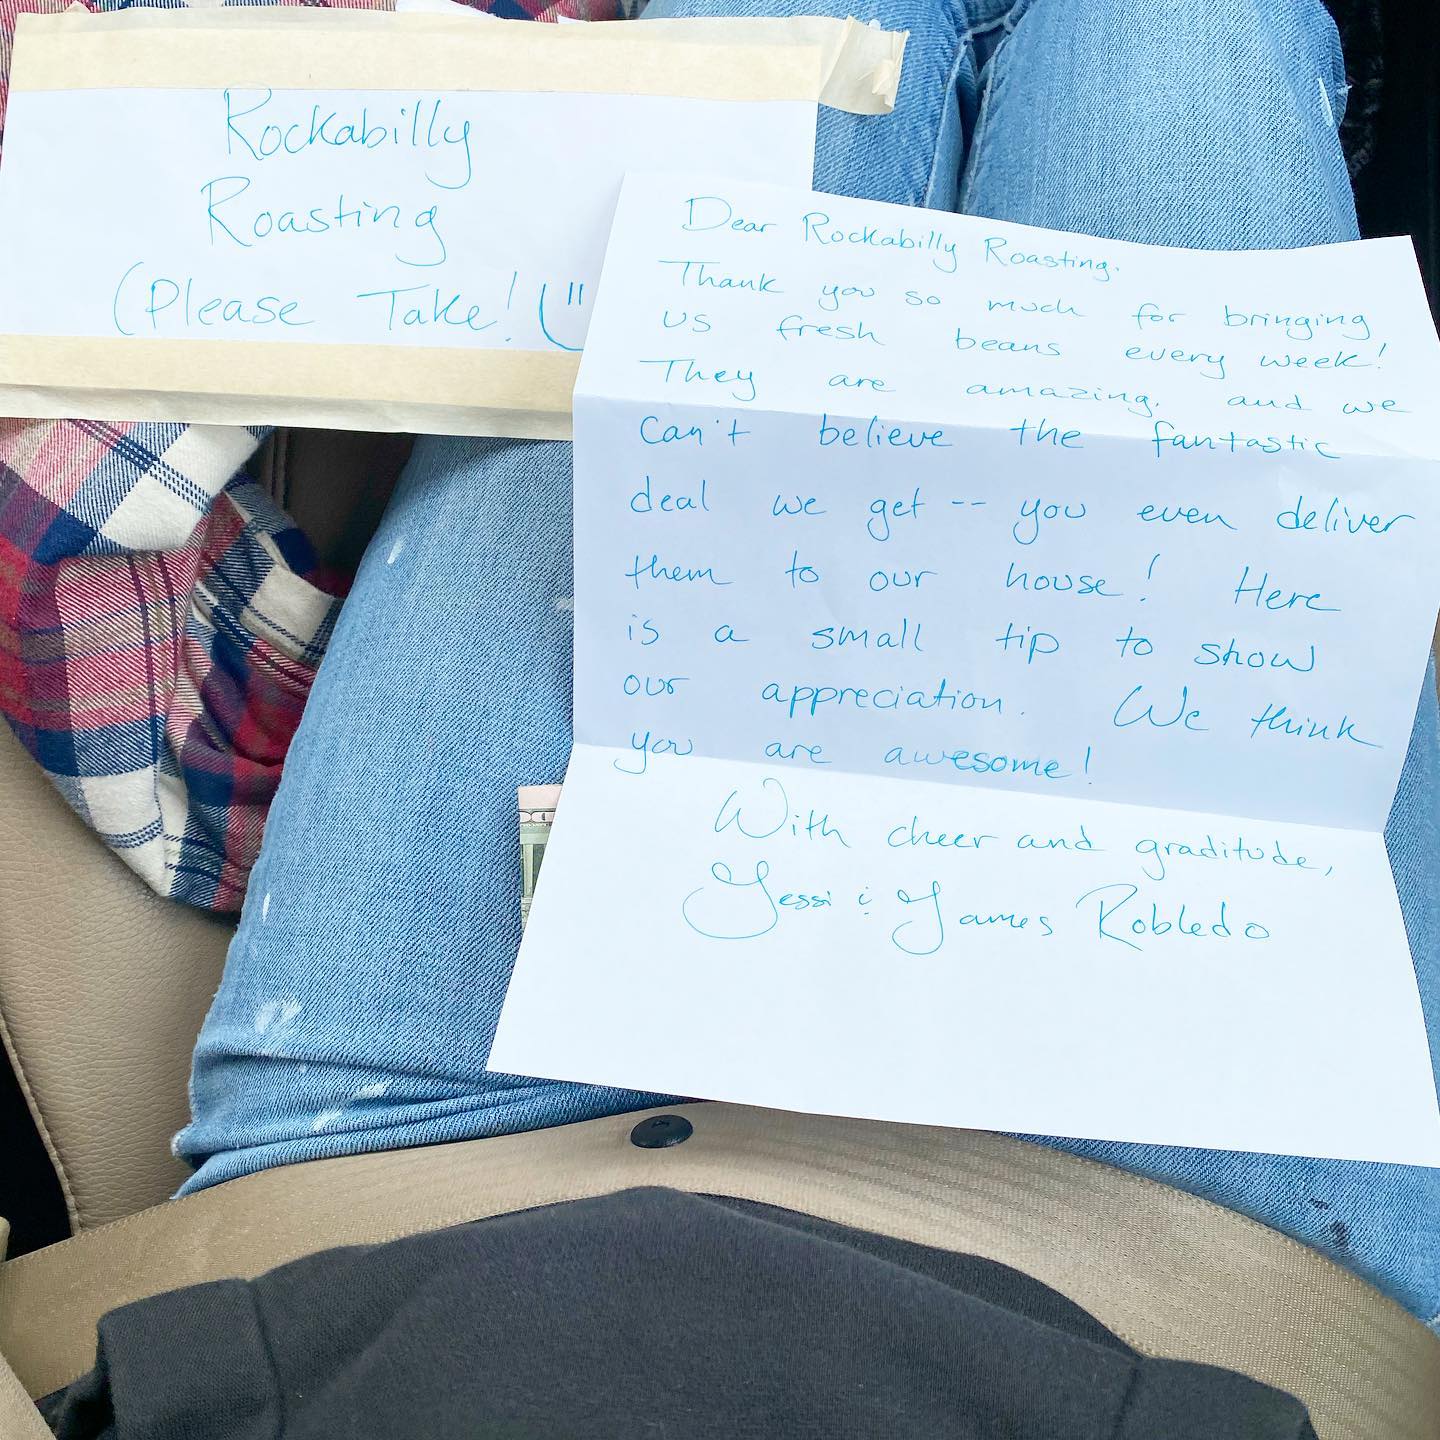 Rockabilly
Roasting
(Please Take! "
Dear Rockabilly Roasting.
Thank you so much for bringing
us fresh beans every week!
They are amazing. and we
can't believe the fantastic
deal we get -- you even deliver
them to our house! Here
is a small tip to show
our appreciation. We think
you are awesome!
With cheer and graditude,
Jessi & James Robledo